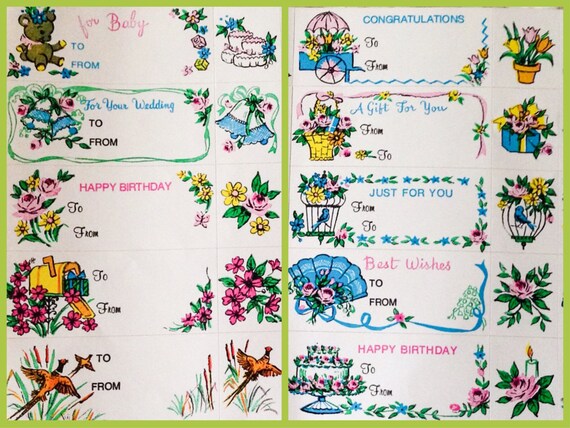 for Baby
TO
FROM
For Your Wedding
TO
FROM
HAPPY BIRTHDAY
To
From
To
From
TO
FROM
CONGRATULATIONS
To
From
A Gift For You
From
To
JUST FOR YOU
To
From
Best Wishes
TO
FROM
HAPPY BIRTHDAY
To
From